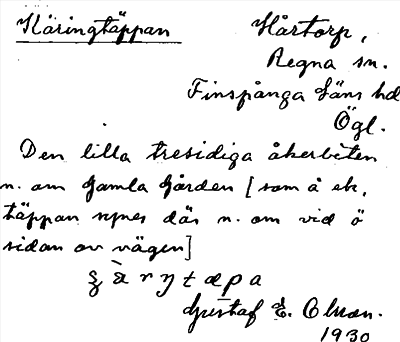 Käringtäppan Hårtorp,
Regna sn.
Finspånga läns hd
Ögl.
Den lilla tresidiga åkerbiten
n. om Gamla Gården [som å ek.
täppan synes där n. om vid ö
sidan av vägen]
Gustaf E. Olsson.
1930